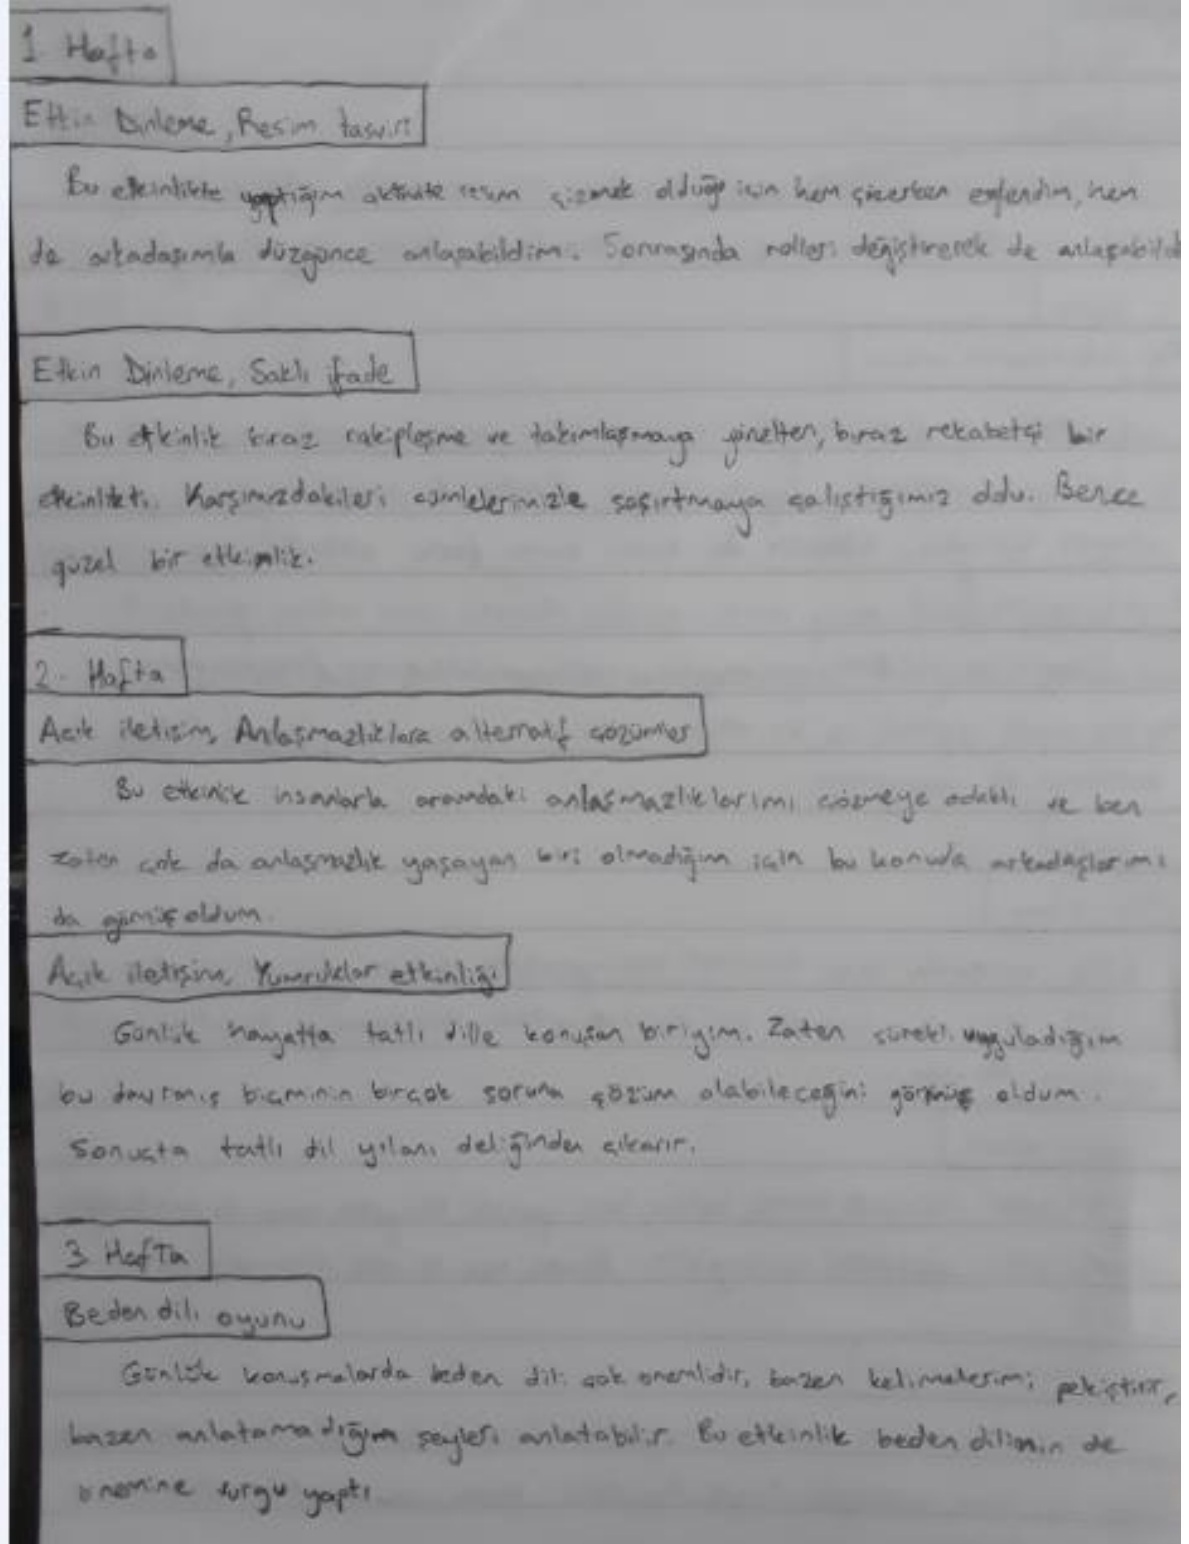 1. Hafta
Etkin Dinleme, Resim tasviri
Bu etkinlikte yaptığım aktivite resim çizmek olduğu için hem çizerken eğlendim, hem
de arkadaşımla düzgünce anlaşabildim. Sonrasında rolleri değiştirerek de anlaşabild
Etkin Dinleme, Saklı ifade
Bu etkinlik biraz rakipleşme ve takımlaşmaya yönelten, biraz rekabetçi bir
etkinlikti. Karşımızdakileri cümlelerimizle şaşırtmaya çalıştığımız oldu. Bence
güzel bir etkinlik.
2. Hafta
Açık iletişim, Anlaşmazlıklara alternatif çözümler
Bu etkinlik insanlarla aramdaki anlaşmazlıklarımı çözmeye odaklı ve ben
zaten çok da anlaşmazlık yaşayan biri olmadığım için bu konuda arkadaşlarımı
da görmüş oldum.
Açık iletişim, Yumruklar etkinliği
Günlük hayatta tatlı dille konuşan biriyim. Zaten sürekli uyguladığım
bu davranış biçminin birçok soruna çözüm olabileceğini görmüş oldum.
Sonuçta tatlı dil yılanı deliğinden çıkarır.
3. Hafta
Beden dili oyunu
Günlük konuşmalarda beden dili çok önemlidir, bazen kelimelerimi pekiştirir,
bazen anlatamadığım şeyleri anlatabilir. Bu etkinlik beden dilimin de
önemine vurgu yaptı